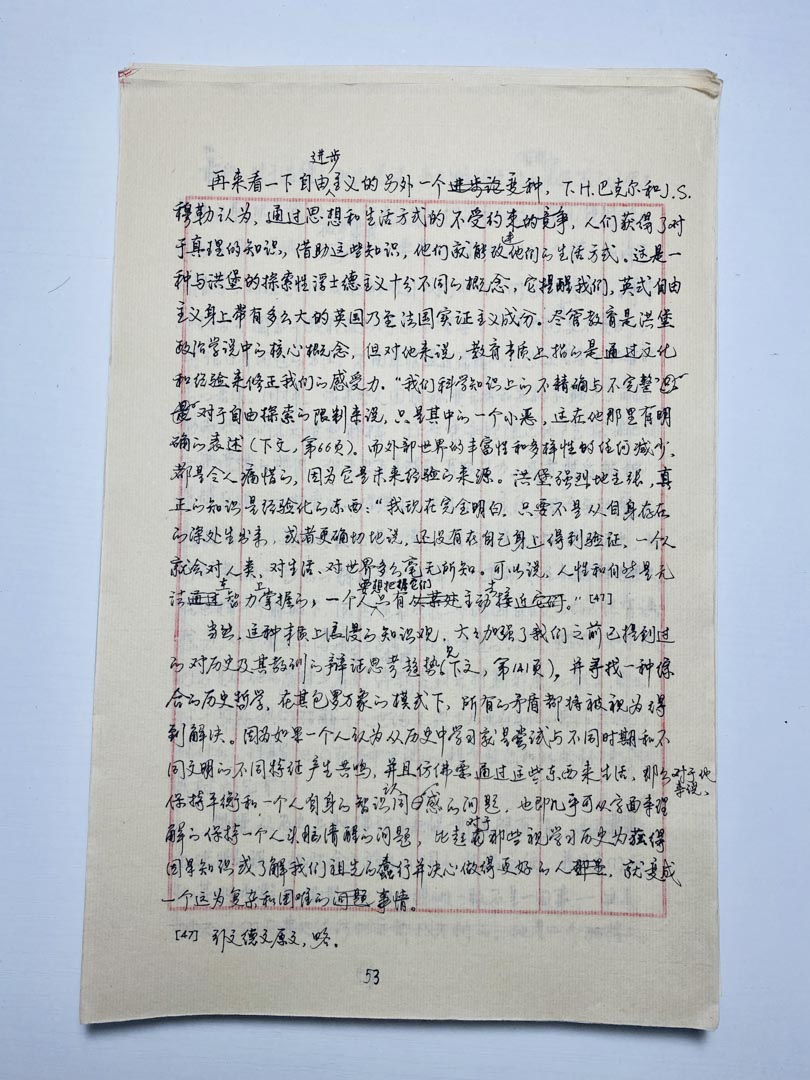 进步
再来看一下自由主义的另外一个进步论变种，T.H.巴克尔和J.S.
穆勒认为，通过思想和生活方式的不受约束的竞争，人们获得了对
于真理的知识，借助这些知识，他们就能改进他们的生活方式。这是一
种与洪堡的探索性浮士德主义十分不同的概念，它提醒我们，英式自由
主义身上带有多么大的英国乃至法国实证主义成分。尽管教育是洪堡
政治学说中的核心概念，但对他来说，教育本质上指的是通过文化
和经验来修正我们的感受力。“我们科学知识上的不精确与不完整”
对于自由探索的限制来说，只是其中的一个小恶，这在他那里有明
确的表述（下文，第66页）。而外部世界的丰富性和多样性的任何减少，
都是令人痛惜的，因为它是未来经验的来源。洪堡强烈地主张，真
正的知识是经验化的东西：“我现在完全明白，只要不是从自身存在
的深处生出来，或者更确切地说，还没有在自己身上得到验证，一个人
就会对人类、对生活、对世界多么毫无所知。可以说，人性和自然是无
法通过智力掌握的，一个人要想把握它们只有从某处主动去接近它们。”[47]
当然，这种本质上浪漫的知识观，大大加强了我们之前已提到过
的对历史及其教训的辩证思考趋势（见下文，第141页），并寻找一种综
合的历史哲学，在其包罗万象的模式下，所有的矛盾都将被视为得
到解决。因为如果一个人认为从历史中学习就是尝试与不同时期和不
同文明的不同特征产生共鸣，并且仿佛要通过这些东西来生活，那么对于他来说，
保持平衡和一个人自身的智识认同感的问题，也即几乎可从字面来理
解的保持一个人头脑清醒的问题，比起对于那些视学习历史为获得
因果知识或了解我们祖先的蠢行并决心做得更好的人那里，就变成
一个远为复杂和困难的问题事情。
[47] 引文德文原文，略。
53